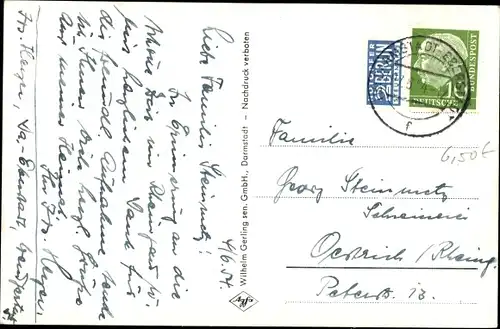 4/6.54.
Liebe Familie Steinmetz!
In Erinnerung an die
schöne Zeit im Rheingau
herzlichsten Dank für
die Aufnahme sende
ich Ihnen herzl. Grüße
aus meiner Heimat.
Ihr Frz. Heyer.
Frz. Heyer, Da-Eberstadt,
Wilhelm Gerling sen. GmbH., Darmstadt - Nachdruck verboten
NOTOPFER
2 BERLIN
STEUERMARKE
DEUTSCHE
BUNDESPOST
10
6,50€
Familie
Georg Steinmetz
Schreinerei
Oestrich/Rheing.
Peterstr. 13.